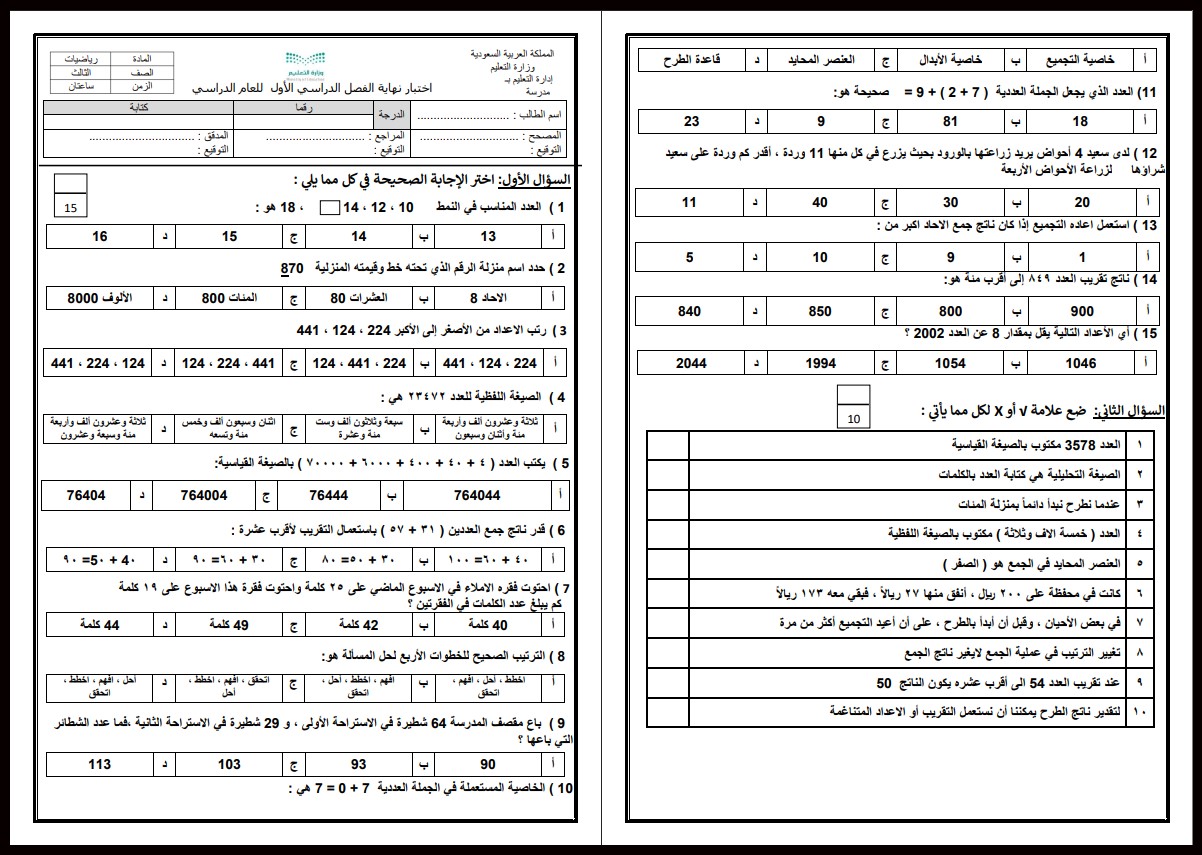 المملكة العربية السعودية
وزارة التعليم
إدارة التعليم بـ
مدرسة
وزارة التعليم
المادة رياضيات
الصف الثالث
الزمن ساعتان
اختبار نهاية الفصل الدراسي الأول للعام الدراسي
اسم الطالب : .......................... الدرجة رقما كتابة
المصحح : ............................ المراجع : ............................ المدقق : ............................
التوقيع : التوقيع : التوقيع :
السؤال الأول: اختر الإجابة الصحيحة في كل مما يلي :
15
1 ) العدد المناسب في النمط 10 ، 12 ، 14 ، 18 هو :
أ 13 ب 14 ج 15 د 16
2 ) حدد اسم منزلة الرقم الذي تحته خط وقيمته المنزلية 870
أ الاحاد 8 ب العشرات 80 ج المئات 800 د الألوف 8000
3 ) رتب الاعداد من الأصغر إلى الأكبر 224 ، 124 ، 441
أ 224 ، 124 ، 441 ب 224 ، 441 ، 124 ج 441 ، 224 ، 124 د 124 ، 224 ، 441
4 ) الصيغة اللفظية للعدد ٢٣٤٧٢ هي :
أ ثلاثة وعشرون ألف وأربعة مئة وأثنان وسبعون ب سبعة وثلاثون ألف وست مئة وعشرة ج اثنان وسبعون ألف وخمس مئة وتسعه د ثلاثة وعشرون ألف وأربعة مئة وسبعة وعشرون
5 ) يكتب العدد ( ٤ + ٤٠ + ٤٠٠ + ٦٠٠٠ + ٧٠٠٠٠ ) بالصيغة القياسية:
أ 764044 ب 76444 ج 764004 د 76404
6 ) قدر ناتج جمع العددين ( ٣١ + ٥٧ ) باستعمال التقريب لأقرب عشرة :
أ ٤٠ + ٦٠= ١٠٠ ب ٣٠ + ٥٠= ٨٠ ج ٣٠ + ٦٠= ٩٠ د 40 + 50= ٩٠
7 ) احتوت فقره الاملاء في الاسبوع الماضي على ٢٥ كلمة واحتوت فقرة هذا الاسبوع على ١٩ كلمة
كم يبلغ عدد الكلمات في الفقرتين ؟
أ 40 كلمة ب 42 كلمة ج 49 كلمة د 44 كلمة
8 ) الترتيب الصحيح للخطوات الأربع لحل المسألة هو:
أ اخطط ، أحل ، افهم ، اتحقق ب افهم ، اخطط ، أحل ، اتحقق ج اتحقق ، افهم ، اخطط ، أحل د أحل ، افهم ، اخطط ، اتحقق
9 ) باع مقصف المدرسة 64 شطيرة في الاستراحة الأولى ، و 29 شطيرة في الاستراحة الثانية ،فما عدد الشطائر
التي باعها ؟
أ 90 ب 93 ج 103 د 113
10 ) الخاصية المستعملة في الجملة العددية 7 + 0 = 7 هي :
أ خاصية التجميع ب خاصية الأبدال ج العنصر المحايد د قاعدة الطرح
11) العدد الذي يجعل الجملة العددية ( 7 + 2 ) + 9 = صحيحة هو:
أ 18 ب 81 ج 9 د 23
12 ) لدى سعيد 4 أحواض يريد زراعتها بالورود بحيث يزرع في كل منها 11 وردة ، أقدر كم وردة على سعيد
شراؤها لزراعة الأحواض الأربعة
أ 20 ب 30 ج 40 د 11
13 ) استعمل اعاده التجميع إذا كان ناتج جمع الاحاد اكبر من :
أ 1 ب 9 ج 10 د 5
14 ) ناتج تقريب العدد ٨٤٩ إلى أقرب مئة هو:
أ 900 ب 800 ج 850 د 840
15 ) أي الأعداد التالية يقل بمقدار 8 عن العدد 2002 ؟
أ 1046 ب 1054 ج 1994 د 2044
السؤال الثاني: ضع علامة √ أو X لكل مما يأتي :
10
١ العدد 3578 مكتوب بالصيغة القياسية
٢ الصيغة التحليلية هي كتابة العدد بالكلمات
٣ عندما نطرح نبدأ دائماً بمنزلة المئات
٤ العدد ( خمسة الاف وثلاثة ) مكتوب بالصيغة اللفظية
٥ العنصر المحايد في الجمع هو ( الصفر )
٦ كانت في محفظة على ٢٠٠ ريال ، أنفق منها ٢٧ ريالاً ، فبقي معه ١٧٣ ريالاً
٧ في بعض الأحيان ، وقبل أن أبدأ بالطرح ، على أن أعيد التجميع أكثر من مرة
٨ تغيير الترتيب في عملية الجمع لايغير ناتج الجمع
٩ عند تقريب العدد 54 الى أقرب عشره يكون الناتج 50
١٠ لتقدير ناتج الطرح يمكننا أن نستعمل التقريب أو الاعداد المتناغمة